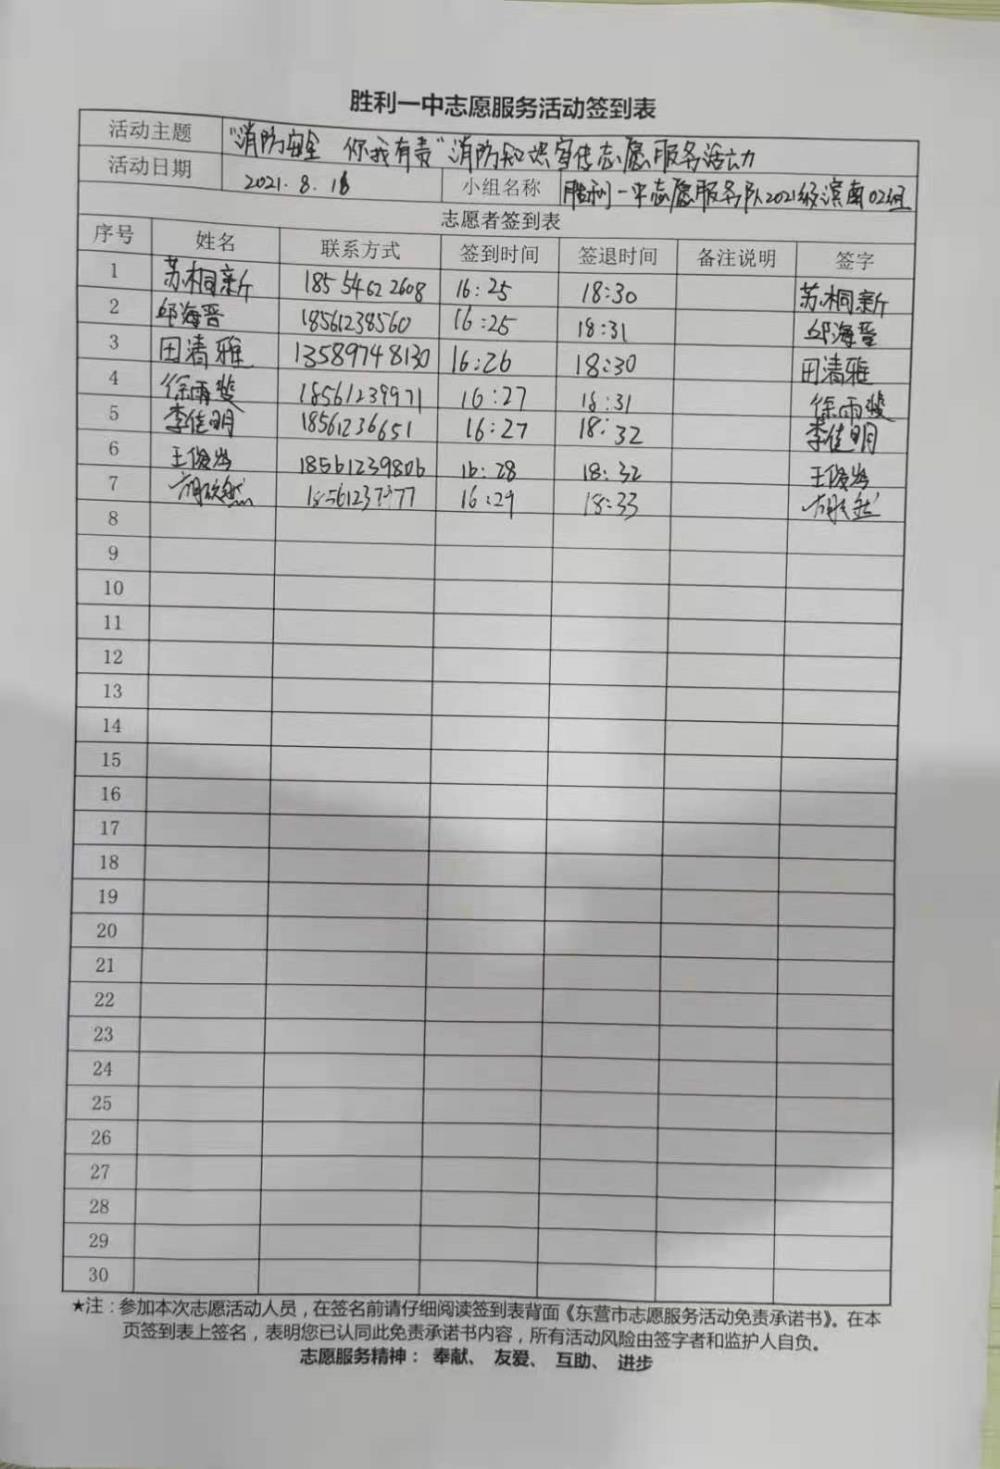 胜利一中志愿服务活动签到表
活动主题 "消防安全 你我有责"消防知识宣传志愿服务活动
活动日期 2021.8.16 小组名称 胜利一中志愿服务队2021级滨南02组
志愿者签到表
序号 姓名 联系方式 签到时间 签退时间 备注说明 签字
1 苏桐新 18554622608 16:25 18:30 苏桐新
2 邱海晋 18561238560 16:25 18:31 邱海晋
3 田清雅 13589748130 16:26 18:30 田清雅
4 徐雨斐 18561239971 16:27 18:31 徐雨斐
5 李佳明 18561236651 16:27 18:32 李佳明
6 18561239806 16:28 18:32
7 16:29 18:33
8
9
10
11
12
13
14
15
16
17
18
19
20
21
22
23
24
25
26
27
28
29
30
★注：参加本次志愿活动人员，在签名前请仔细阅读签到表背面《东营市志愿服务活动免责承诺书》。在本
页签到表上签名，表明您已认同此免责承诺书内容，所有活动风险由签字者和监护人自负。
志愿服务精神： 奉献、 友爱、 互助、 进步